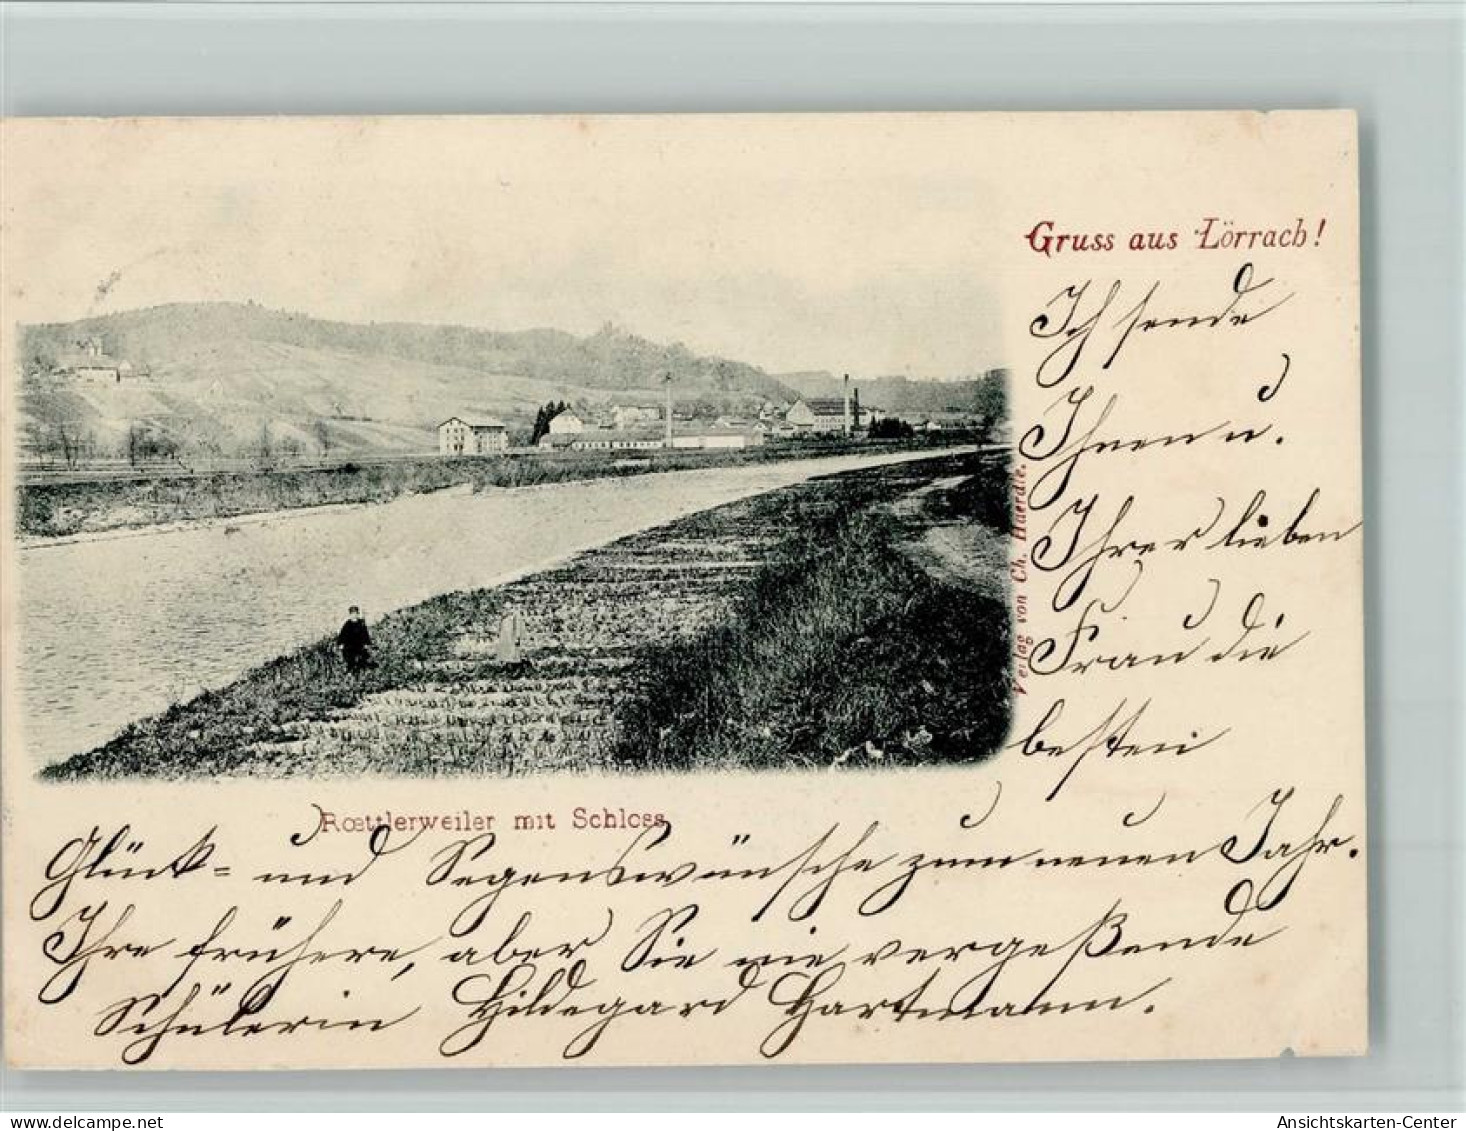 Gruss aus Lörrach!
Ich sende
Ihnen u.
Ihrer lieben
Frau die
besten
Verlag von Ch. Haerdle.
Rœttlerweiler mit Schloss
Glück- und Segenswünsche zum neuen Jahr.
Ihre frühere, aber Sie nie vergeßende
Schülerin Hildegard Hartmann.
Ansichtskarten-Center